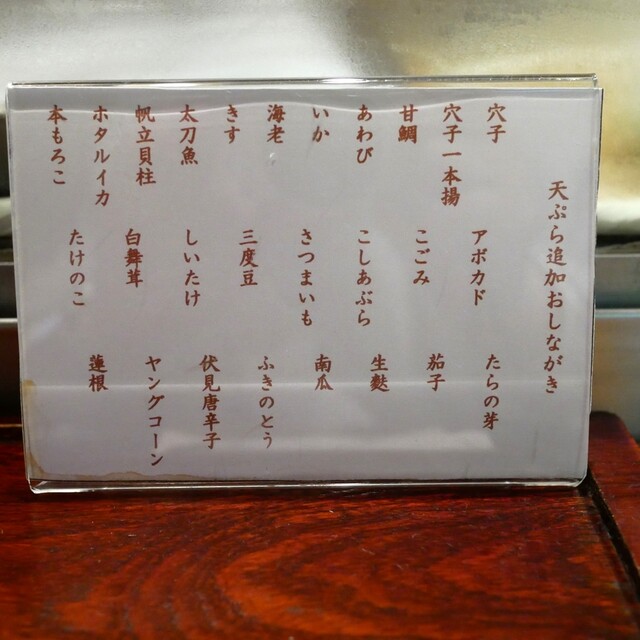 天ぷら追加おしながき
穴子
穴子一本揚
甘鯛
あわび
いか
海老
きす
太刀魚
帆立貝柱
ホタルイカ
本もろこ
アボカド
こごみ
こしあぶら
さつまいも
三度豆
しいたけ
白舞茸
たけのこ
たらの芽
茄子
生麩
南瓜
ふきのとう
伏見唐辛子
ヤングコーン
蓮根